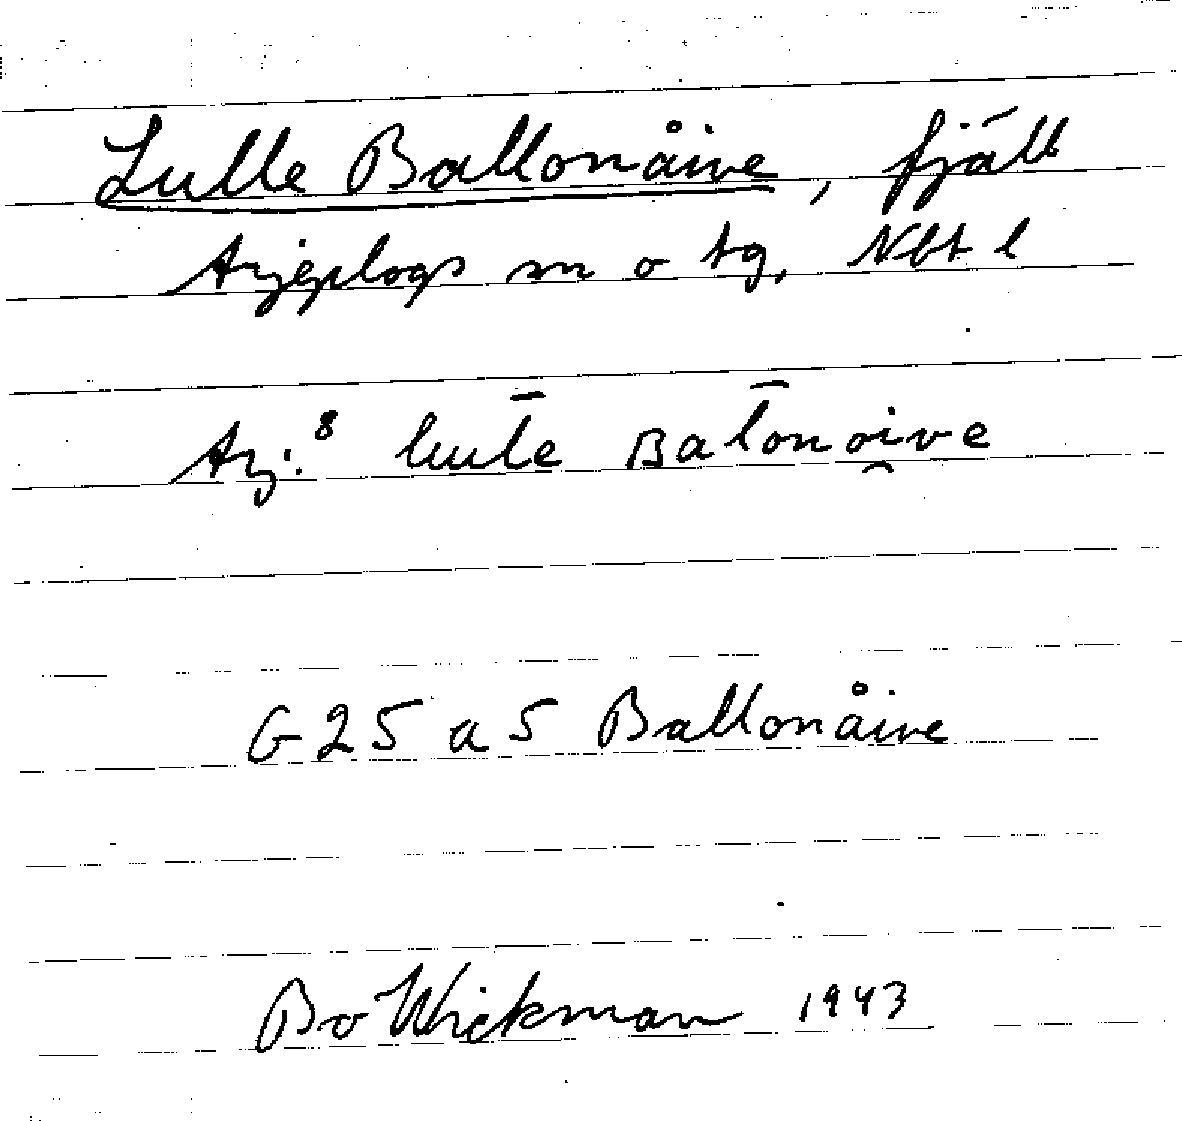 Lulle Ballonåive, fjäll
Arjeplogs sn o tg, Nbt l
Arj.⁸ lul̄e ʙal̄onɑi̯ve
G 25 a 5 Ballonåive
Bo Wickman 1943